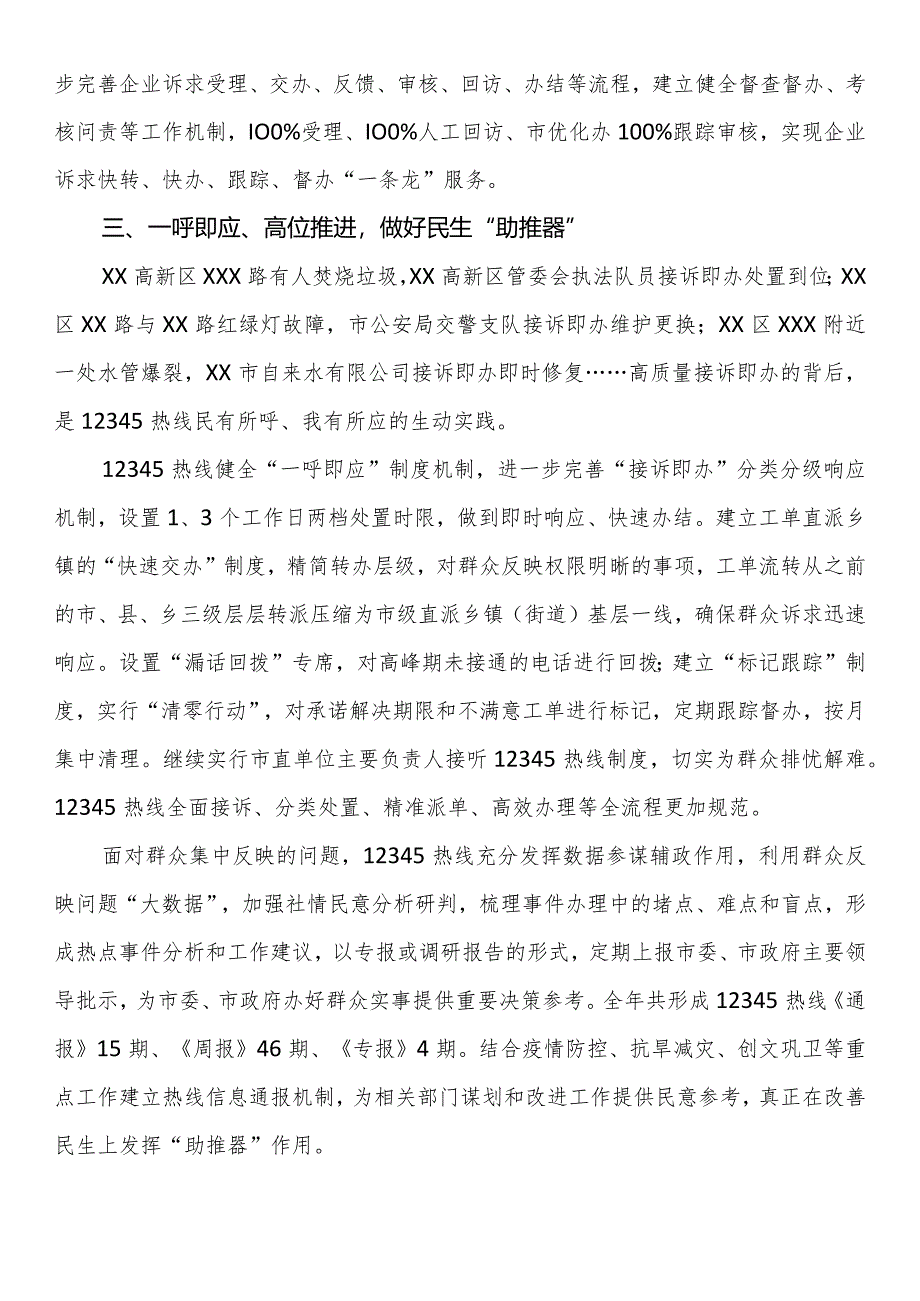 步完善企业诉求受理、交办、反馈、审核、回访、办结等流程，建立健全督查督办、考
核问责等工作机制，IO0%受理、IO0%人工回访、市优化办 100%跟踪审核，实现企业
诉求快转、快办、跟踪、督办“一条龙”服务。
三、一呼即应、高位推进，做好民生“助推器”
XX 高新区 XXX 路有人焚烧垃圾，XX 高新区管委会执法队员接诉即办处置到位；XX
区 XX 路与 XX 路红绿灯故障，市公安局交警支队接诉即办维护更换；XX 区 XXX 附近
一处水管爆裂，XX 市自来水有限公司接诉即办即时修复……高质量接诉即办的背后，
是 12345 热线民有所呼、我有所应的生动实践。
12345 热线健全“一呼即应”制度机制，进一步完善“接诉即办”分类分级响应
机制，设置 1、3 个工作日两档处置时限，做到即时响应、快速办结。建立工单直派乡
镇的“快速交办”制度，精简转办层级，对群众反映权限明晰的事项，工单流转从之前
的市、县、乡三级层层转派压缩为市级直派乡镇（街道）基层一线，确保群众诉求迅速
响应。设置“漏话回拨”专席，对高峰期未接通的电话进行回拨；建立“标记跟踪”制
度，实行“清零行动”，对承诺解决期限和不满意工单进行标记，定期跟踪督办，按月
集中清理。继续实行市直单位主要负责人接听 12345 热线制度，切实为群众排忧解难。
12345 热线全面接诉、分类处置、精准派单、高效办理等全流程更加规范。
面对群众集中反映的问题，12345 热线充分发挥数据参谋辅政作用，利用群众反
映问题“大数据”，加强社情民意分析研判，梳理事件办理中的堵点、难点和盲点，形
成热点事件分析和工作建议，以专报或调研报告的形式，定期上报市委、市政府主要领
导批示，为市委、市政府办好群众实事提供重要决策参考。全年共形成 12345 热线《通
报》15 期、《周报》46 期、《专报》4 期。结合疫情防控、抗旱减灾、创文巩卫等重
点工作建立热线信息通报机制，为相关部门谋划和改进工作提供民意参考，真正在改善
民生上发挥“助推器”作用。